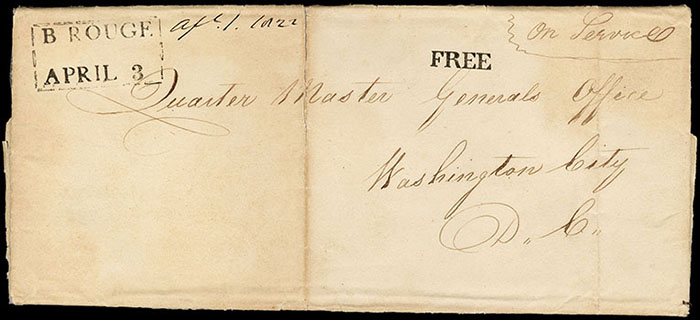 B ROUGE
APRIL 3
Apl. 1. 1822
On Service
FREE
Quarter Master Generals Office
Washington City
D,, C,,